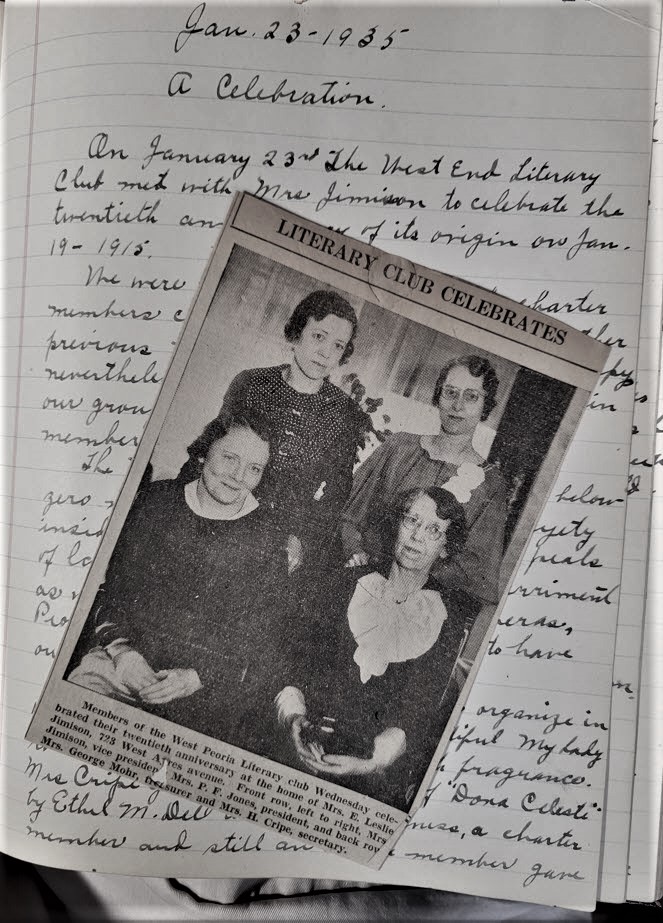 Jan. 23-1935
A Celebration.
On January 23rd The West End Literary
Club met with Mrs Jimison to celebrate the
twentieth an of its origin on Jan.
19-1915.
We were charter
members
previous
neverthele in
our grou
member
The below
zero
insid
of peals
as rriment
Peo
ou to have
organize in
My Lady
fragrance.
Mrs Cripe "Dona Celesti"
by Ethel M. Dell a charter
member and still an member gave
LITERARY CLUB CELEBRATES
Members of the West Peoria Literary club Wednesday cele-
brated their twentieth anniversary at the home of Mrs. E. Leslie
Jimison, 723 West Ayres avenue. Front row, left to right, Mrs
Jimison, vice president, Mrs. P. F. Jones, president, and back row
Mrs. George Mohr, treasurer, and Mrs. H. Cripe, secretary.